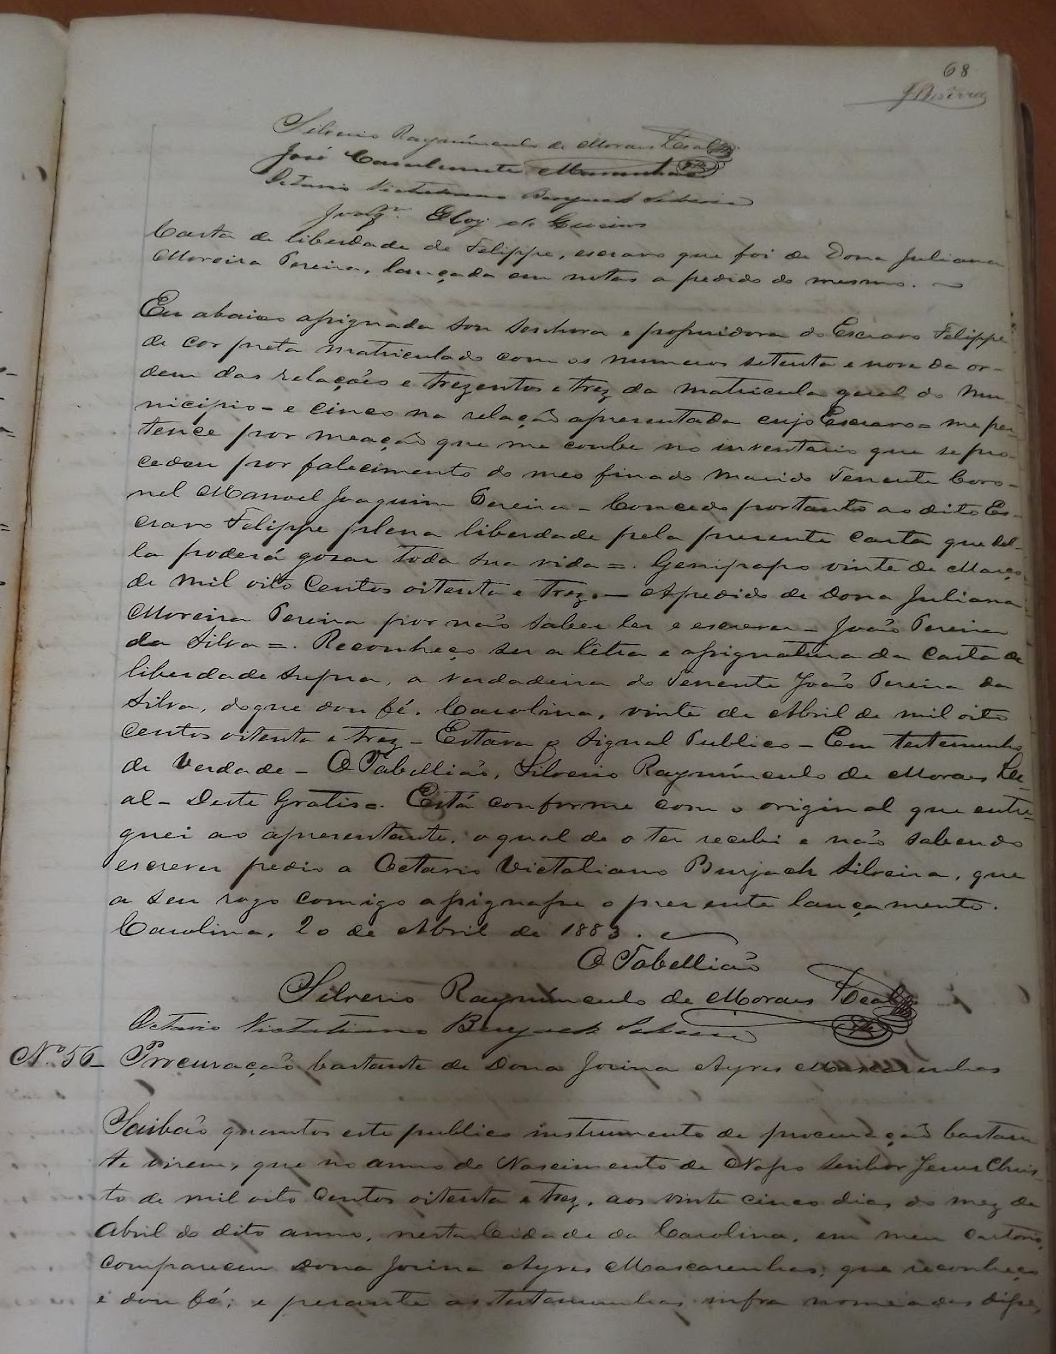 68
Silverio Raymúmundo de Moraes Leal
José Cavalcante Maranhão
Octavio Victaliano Burjack Silveira
Joaqm. Eloy de
Carta de liberdade de Felippe, escravo que foi de Dona Juliana
Moreira Pereira, lançada em notas a pedido do mesmo.
Eu abaixo assignada sou Senhora e possuidora do Escravo Felippe
de cor preta matriculado com os numeros setenta e nove da or-
dem das relações e trezentos e trez da matricula geral do Mu-
nicipio - e cinco na relação apresentada cujo Escravo me per-
tence por meação que me coube no inventario que se pro-
cedeu por falecimento do meo finado marido Tenente Coro-
nel Manoel Joaquim Pereira - Concedo portanto ao dito Es-
cravo Felippe plena liberdade pela presente carta que del-
la poderá gosar toda sua vida =. Genipapo vinte de Março
de mil oito Centos oitenta e trez. — Apedido de Dona Juliana
Moreira Pereira por não saber ler e escrever - João Pereira
da Silva =. Reconheço ser a letra e assignatura da Carta de
liberdade supra, a verdadeira do Tenente João Pereira da
Silva, do que dou fé. Carolina, vinte de Abril de mil oito
centos oitenta e trez - Estava o Signal Publico - Em testemunho
de Verdade - O Tabellião, Silverio Raymúmundo de Moraes Le-
al - Deste Gratis =. Está conforme com o original que entre-
guei ao apresentante, o qual de o ter recebi e não sabendo
escrever pedio a Octavio Victaliano Burjack Silveira, que
a seu rogo comigo assignasse o presente lançamento.
Carolina, 20 de Abril de 1883.
O Tabellião
Silverio Raymúmundo de Moraes Leal
Octavio Victaliano Burjack Silveira
No. 56 - Procuração bastante de Dona Jovina Ayres Mascarenhas
Saibão quantos este publico instrumento de procuração bastan-
te virem, que no anno do Nascimento de Nosso Senhor Jesus Chris-
to de mil oito Centos oitenta e trez, aos vinte cinco dias do mez de
Abril do dito anno, nesta Cidade da Carolina, em meu Cartorio,
compareceu Dona Jovina Ayres Mascarenhas, que reconheço
e dou fé; e perante as testemunhas infra nomeadas disse,